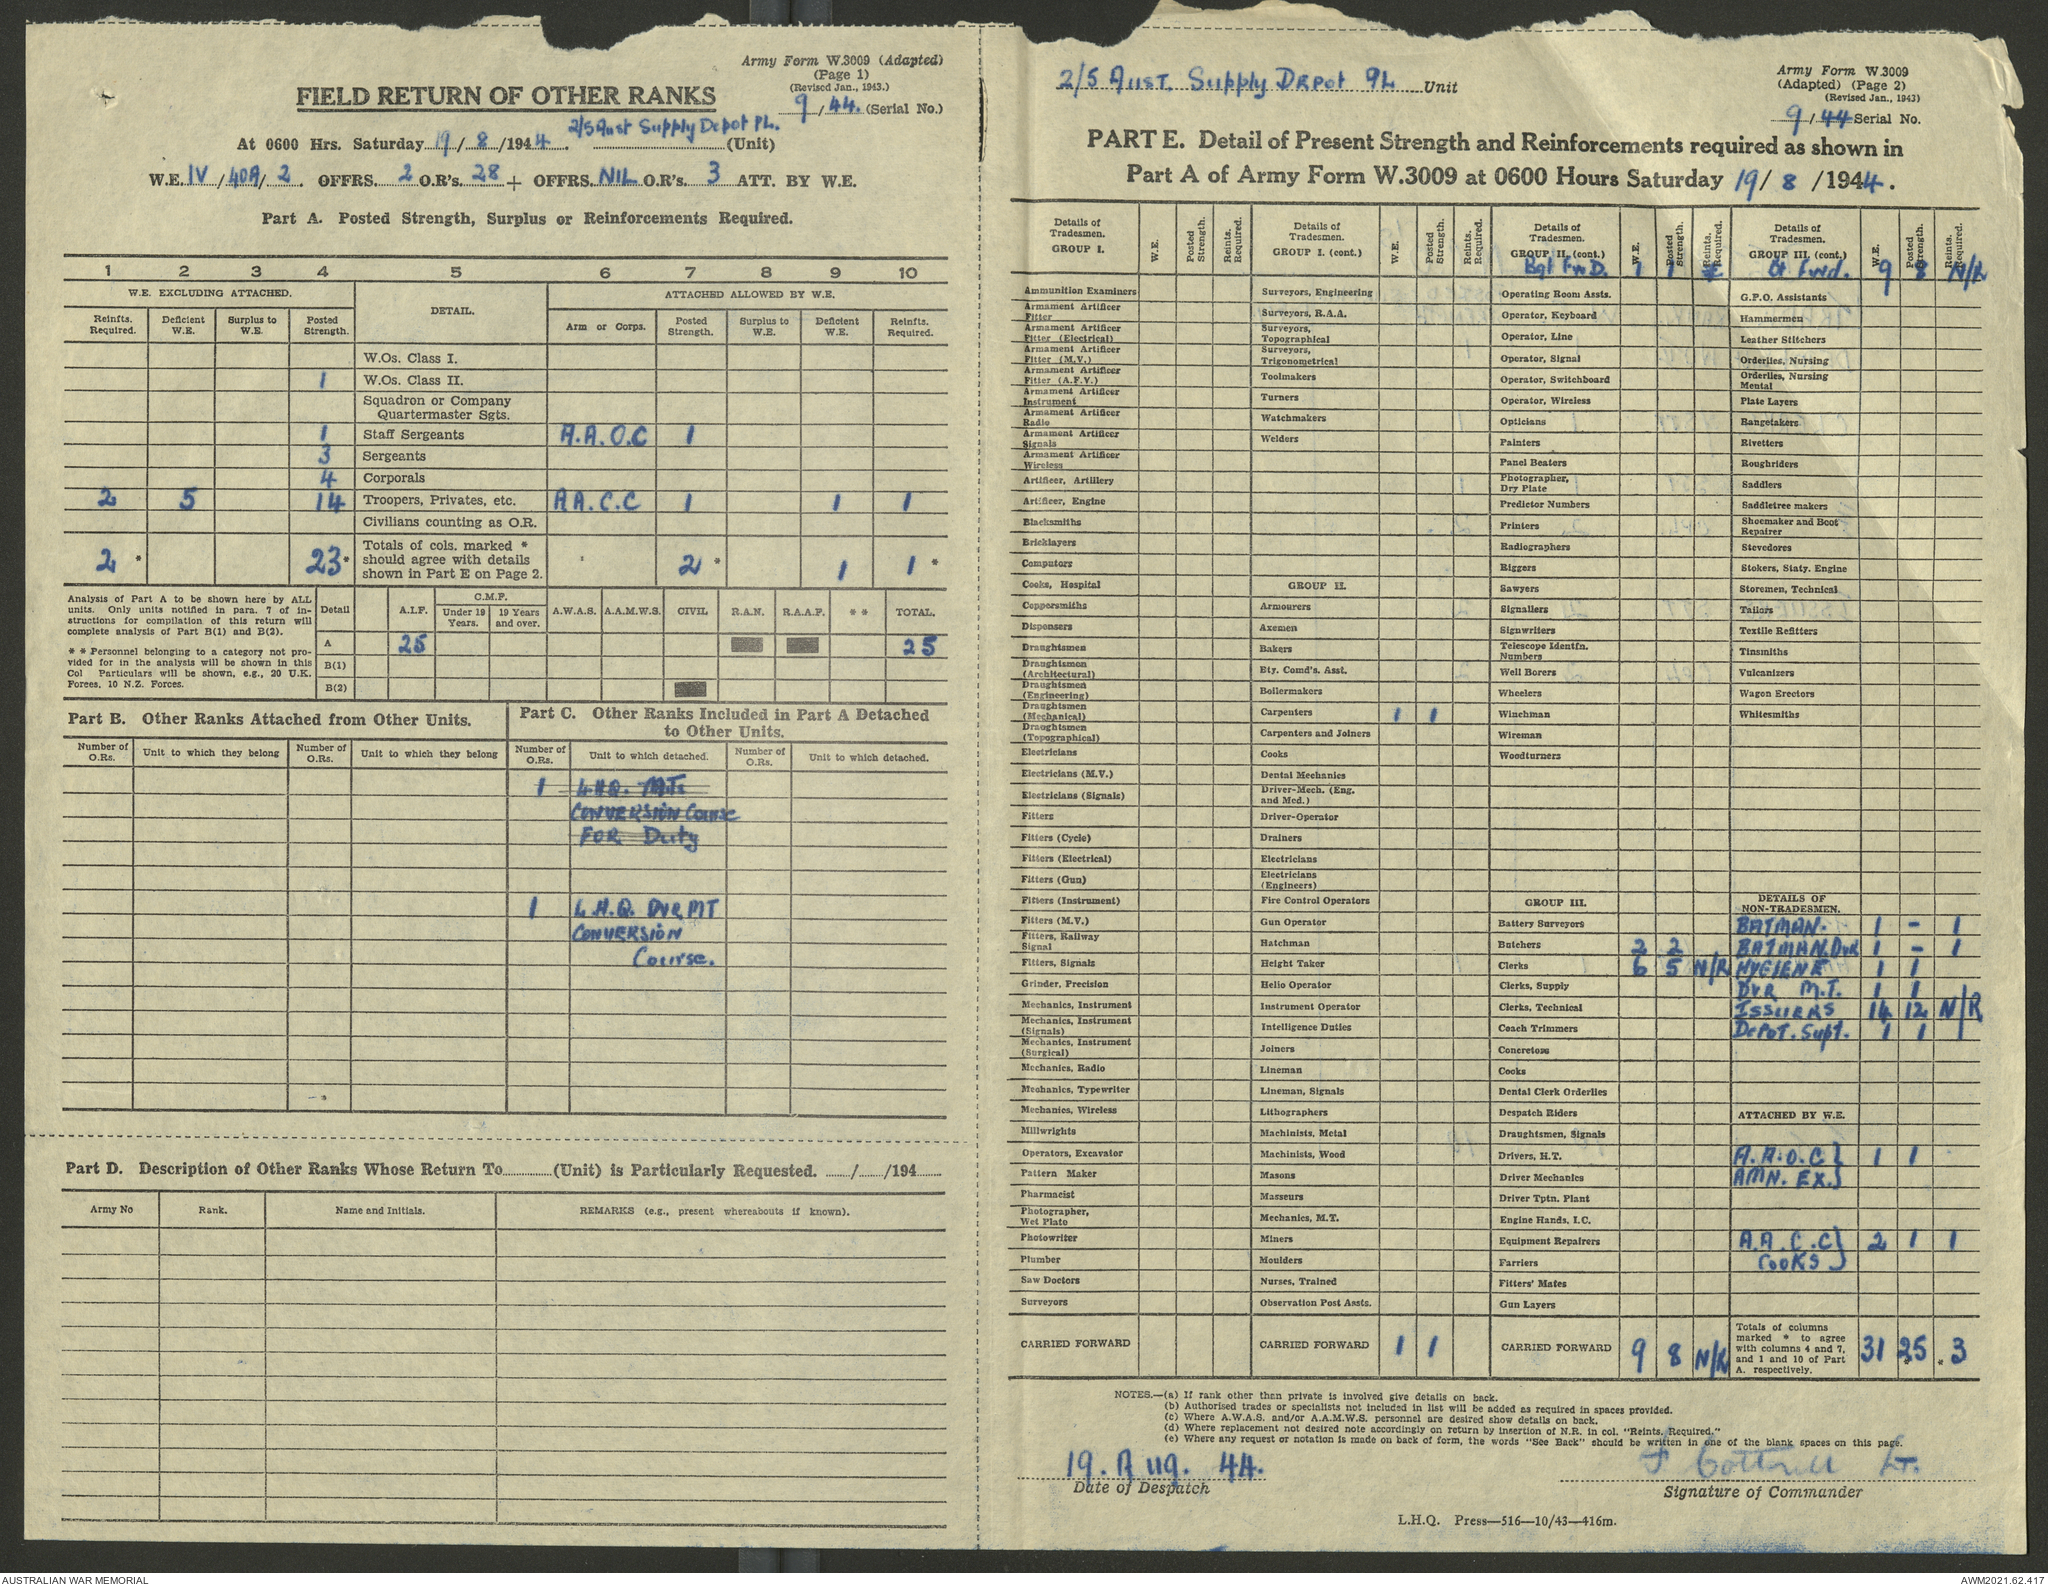 Army Form W.3009 (Adapted)
(Page 1)
(Revised Jan., 1943.)
9/44. (Serial No.)
FIELD RETURN OF OTHER RANKS
2/5 Aust Supply Depot PL.
At 0600 Hrs. Saturday 19/8/1944. (Unit)
W.E. IV/40A/2. OFFRS. 2 O.R's. 28 + OFFRS. NIL O.R's. 3 ATT. BY W.E.
Part A. Posted Strength, Surplus or Reinforcements Required.
1 2 3 4 5 6 7 8 9 10
W.E. EXCLUDING ATTACHED. DETAIL. ATTACHED ALLOWED BY W.E.
Reinfts. Required. Deficient W.E. Surplus to W.E. Posted Strength. Arm or Corps. Posted Strength. Surplus to W.E. Deficient W.E. Reinfts. Required.
W.Os. Class I.
1 W.Os. Class II.
Squadron or Company
Quartermaster Sgts.
1 Staff Sergeants A.A.O.C 1
3 Sergeants
4 Corporals
2 5 14 Troopers, Privates, etc. A.A.C.C 1 1 1
Civilians counting as O.R.
Totals of cols. marked *
should agree with details
shown in Part E on Page 2.
2 * 23 * 2 * 1 1 *
Analysis of Part A to be shown here by ALL
units. Only units notified in para. 7 of in-
structions for compilation of this return will
complete analysis of Part B(1) and B(2).
* * Personnel belonging to a category not pro-
vided for in the analysis will be shown in this
Col Particulars will be shown, e.g., 20 U.K.
Forces, 10 N.Z. Forces.
Detail A.I.F. C.M.F. Under 19 Years. 19 Years and over. A.W.A.S. A.A.M.W.S. CIVIL R.A.N. R.A.A.F. * * TOTAL.
A 25 25
B(1)
B(2)
Part B. Other Ranks Attached from Other Units.
Number of O.Rs. Unit to which they belong Number of O.Rs. Unit to which they belong
Part C. Other Ranks Included in Part A Detached
to Other Units.
Number of O.Rs. Unit to which detached. Number of O.Rs. Unit to which detached.
1 L.H.Q. M.T.
CONVERSION Course
FOR Duty
1 L.H.Q. DVR MT
CONVERSION
Course.
Part D. Description of Other Ranks Whose Return To (Unit) is Particularly Requested. / /194
Army No Rank. Name and Initials. REMARKS (e.g., present whereabouts if known).
2/5 Aust. Supply Depot PL Unit
Army Form W.3009
(Adapted) (Page 2)
(Revised Jan., 1943)
9/44 Serial No.
PART E. Detail of Present Strength and Reinforcements required as shown in
Part A of Army Form W.3009 at 0600 Hours Saturday 19/8/1944.
Details of Tradesmen. GROUP I. W.E. Posted Strength. Reints. Required.
Ammunition Examiners
Armament Artificer Fitter
Armament Artificer Fitter (Electrical)
Armament Artificer Fitter (M.V.)
Armament Artificer Fitter (A.F.V.)
Armament Artificer Instrument
Armament Artificer Radio
Armament Artificer Signals
Armament Artificer Wireless
Artificer, Artillery
Artificer, Engine
Blacksmiths
Bricklayers
Computors
Cooks, Hospital
Coppersmiths
Dispensers
Draughtsmen
Draughtsmen (Architectural)
Draughtsmen (Engineering)
Draughtsmen (Mechanical)
Draughtsmen (Topographical)
Electricians
Electricians (M.V.)
Electricians (Signals)
Fitters
Fitters (Cycle)
Fitters (Electrical)
Fitters (Gun)
Fitters (Instrument)
Fitters (M.V.)
Fitters, Railway Signal
Fitters, Signals
Grinder, Precision
Mechanics, Instrument
Mechanics, Instrument (Signals)
Mechanics, Instrument (Surgical)
Mechanics, Radio
Mechanics, Typewriter
Mechanics, Wireless
Millwrights
Operators, Excavator
Pattern Maker
Pharmacist
Photographer, Wet Plate
Photowriter
Plumber
Saw Doctors
Surveyors
CARRIED FORWARD
Details of Tradesmen. GROUP I. (cont.) W.E. Posted Strength. Reints. Required.
Surveyors, Engineering
Surveyors, R.A.A.
Surveyors, Topographical
Surveyors, Trigonometrical
Toolmakers
Turners
Watchmakers
Welders
GROUP II.
Armourers
Axemen
Bakers
Bty. Comd's. Asst.
Boilermakers
Carpenters 1 1
Carpenters and Joiners
Cooks
Dental Mechanics
Driver-Mech. (Eng. and Med.)
Driver-Operator
Drainers
Electricians
Electricians (Engineers)
Fire Control Operators
Gun Operator
Hatchman
Height Taker
Helio Operator
Instrument Operator
Intelligence Duties
Joiners
Lineman
Lineman, Signals
Lithographers
Machinists, Metal
Machinists, Wood
Masons
Masseurs
Mechanics, M.T.
Miners
Moulders
Nurses, Trained
Observation Post Assts.
CARRIED FORWARD 1 1
Details of Tradesmen. GROUP II. (cont.) W.E. Posted Strength. Reints. Required.
Bgt FwD. 1 1
Operating Room Assts.
Operator, Keyboard
Operator, Line
Operator, Signal
Operator, Switchboard
Operator, Wireless
Opticians
Painters
Panel Beaters
Photographer, Dry Plate
Predictor Numbers
Printers
Radiographers
Riggers
Sawyers
Signallers
Signwriters
Telescope Identfn. Numbers
Well Borers
Wheelers
Winchman
Wireman
Woodturners
GROUP III.
Battery Surveyors
Butchers 2 2
Clerks 6 5 N/R
Clerks, Supply
Clerks, Technical
Coach Trimmers
Concretors
Cooks
Dental Clerk Orderlies
Despatch Riders
Draughtsmen, Signals
Drivers, H.T.
Driver Mechanics
Driver Tptn. Plant
Engine Hands, I.C.
Equipment Repairers
Farriers
Fitters' Mates
Gun Layers
CARRIED FORWARD 9 8 N/R
Details of Tradesmen. GROUP III. (cont.) W.E. Posted Strength. Reints. Required.
Bt Fwd. 9 8 N/R
G.P.O. Assistants
Hammermen
Leather Stitchers
Orderlies, Nursing
Orderlies, Nursing Mental
Plate Layers
Rangetakers
Rivetters
Roughriders
Saddlers
Saddletree makers
Shoemaker and Boot Repairer
Stevedores
Stokers, Staty. Engine
Storemen, Technical
Tailors
Textile Refitters
Tinsmiths
Vulcanizers
Wagon Erectors
Whitesmiths
DETAILS OF NON-TRADESMEN.
BATMAN. 1 - 1
BATMAN.DvR 1 - 1
HYGIENE 1 1
DVR M.T. 1 1
ISSUERS 14 12 N/R
Depot. Supt. 1 1
ATTACHED BY W.E.
A.A.O.C } 1 1
AMN. EX. }
A.A.C.C } 2 1 1
COOKS }
Totals of columns
marked * to agree
with columns 4 and 7,
and 1 and 10 of Part
A. respectively.
31 25 * * 3
NOTES.—(a) If rank other than private is involved give details on back.
(b) Authorised trades or specialists not included in list will be added as required in spaces provided.
(c) Where A.W.A.S. and/or A.A.M.W.S. personnel are desired show details on back.
(d) Where replacement not desired note accordingly on return by insertion of N.R. in col. "Reints. Required."
(e) Where any request or notation is made on back of form, the words "See Back" should be written in one of the blank spaces on this page.
19. Aug. 44.
Date of Despatch
F Cottrell Lt.
Signature of Commander
L.H.Q. Press—516—10/43—416m.
AUSTRALIAN WAR MEMORIAL
AWM2021.62.417